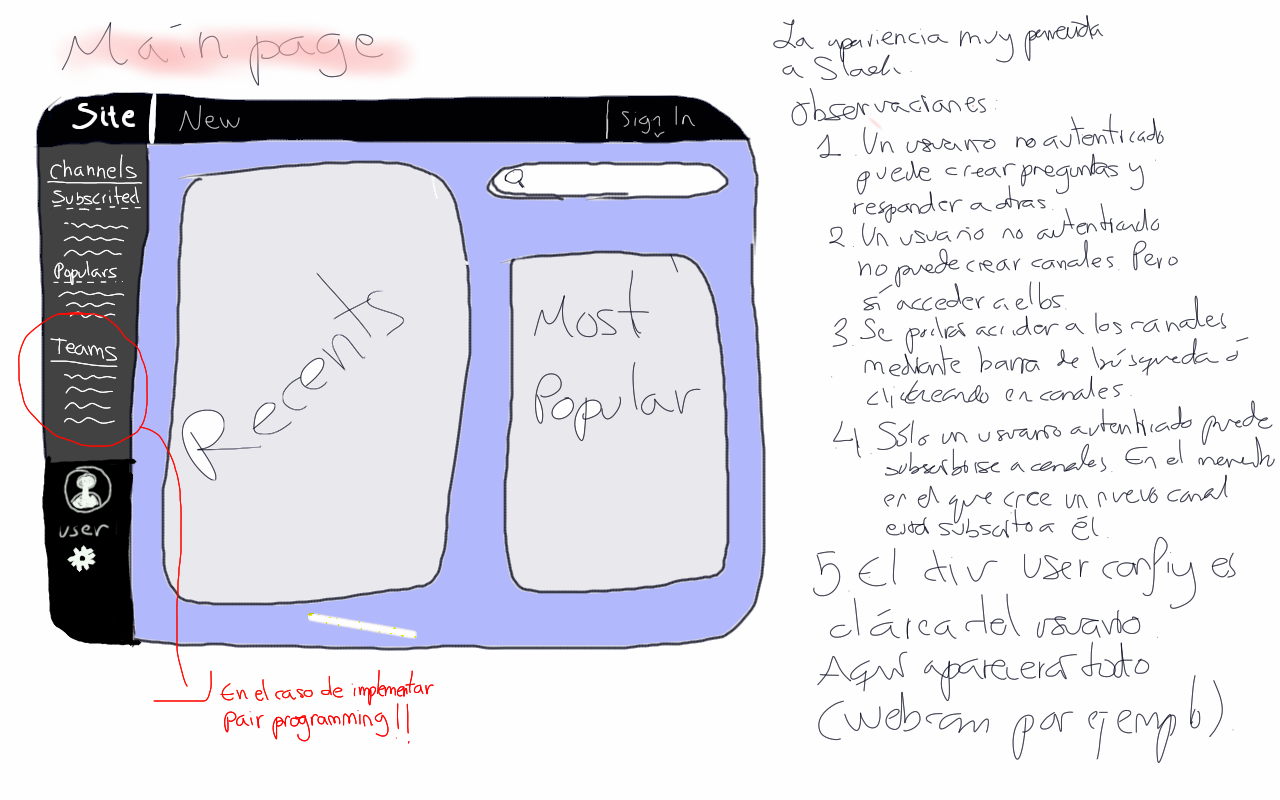 Main page
Site
New
Sign In
Channels
Subscrited
Populars
Teams
user
Recents
Most
Popular
En el caso de implementar
Pair programming!!
La apariencia muy parecida
a Slack.
Observaciones:
1. Un usuario no autenticado
puede crear preguntas y
responder a otras.
2. Un usuario no autenticado
no puede crear canales. Pero
sí acceder a ellos.
3. Se podrá acceder a los canales
mediante barra de búsqueda ó
clickeando en canales.
4. Sólo un usuario autenticado puede
subscribirse a canales. En el momento
en el que cree un nuevo canal
está subscrito a él.
5. El div user config es
el área del usuario.
Aquí aparecerá todo
(webcam por ejemplo).